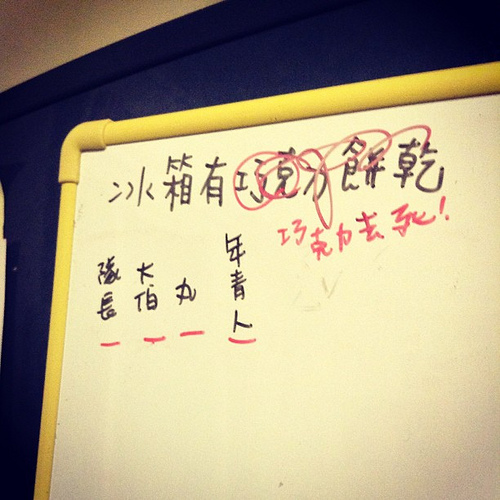 冰箱有巧克力餅乾
巧克力去死!
隊長
大伯
丸
年青人